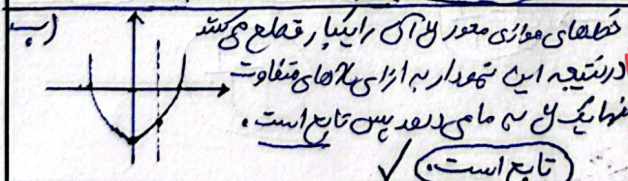 ب)
خط‌های موازی محور y آن را یکبار قطع می‌کنند
در نتیجه این نمودار به ازای xهای متفاوت
تنها یک y به ما می‌دهد پس تابع است.
تابع است. ✓